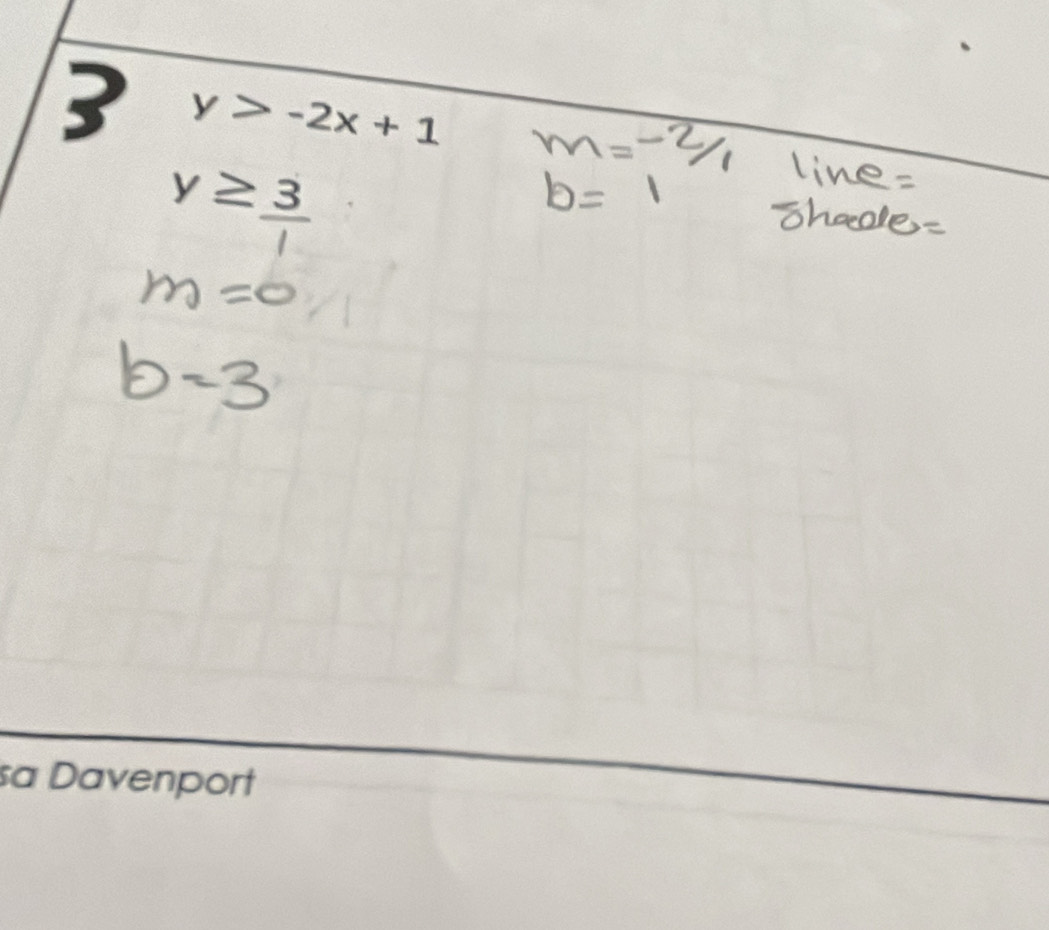 3 y > -2x + 1 m = -2/1 line =
y ≥ 3/1 b = 1 Shade =
m = 0
b = 3
sa Davenport